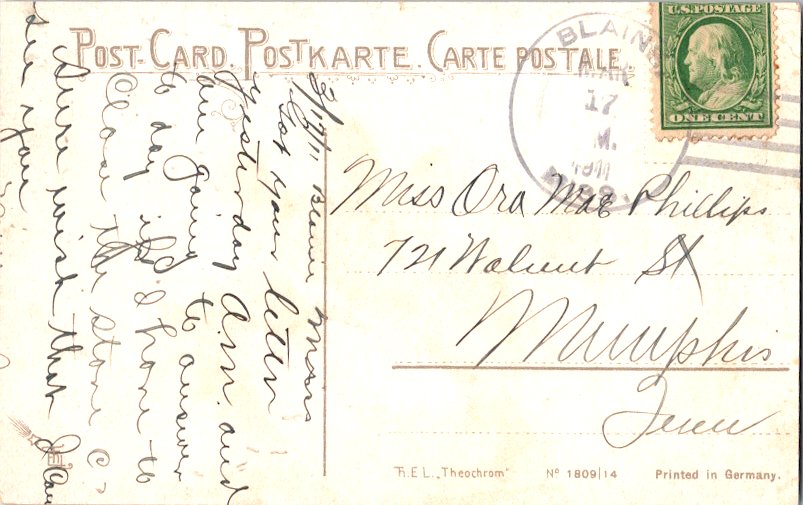 POST-CARD. POSTKARTE. CARTE POSTALE.
U.S. POSTAGE
ONE CENT
BLAINE
MAR
17
M.
1911
MISS.
3/17/11 Blaine Miss
Got your letter
yesterday A.M. and
am going to answer
to day if I have to
Close the store
Sure wish that I Can
see you
Miss Ora Mae Phillips
721 Walnut St
Memphis
Tenn
T.E.L. „Theochrom" No 1809/14 Printed in Germany.